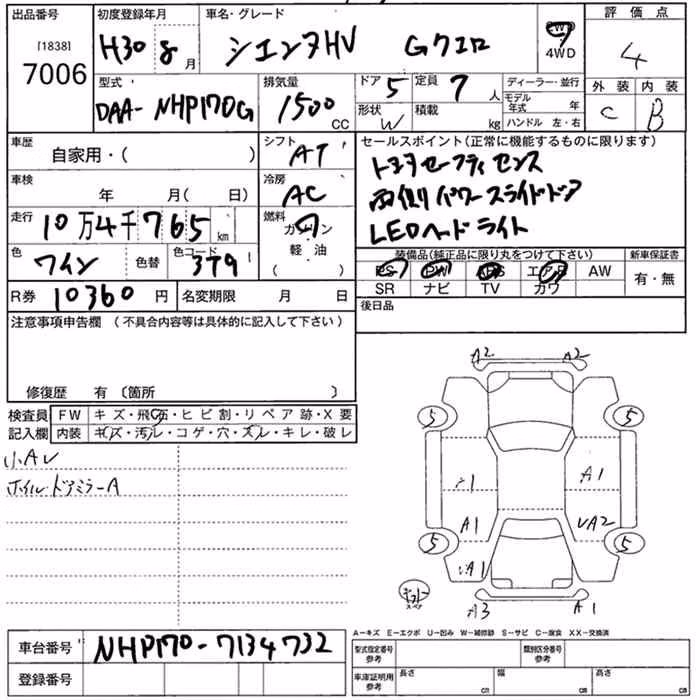 出品番号 初度登録年月 車名・グレード 評価点
[1838]
7006
H30 8月 シエンタHV Gクエロ 2WD 4WD 4
型式 排気量 ドア 5 定員 7人 ディーラー・並行 外装 内装
DAA-NHP170G 1500CC 形状 W 積載 kg モデル年式 年 ハンドル 左・右 C B
車歴 自家用・( ) シフト AT セールスポイント(正常に機能するものに限ります)
トヨタセーフティセンス
車検 年 月( 日) 冷房 AC 両側パワースライドドア
走行 10万4千765km 燃料 ガソリン 軽・油 ( ) LEDヘッドライト
色 ワイン 色替 色コード 3T9 装備品(純正品に限り丸をつけて下さい) 新車保証書
PS PW ABS エアB AW 有・無
R券 10360円 名変期限 月 日 SR ナビ TV カワ
注意事項申告欄(不具合内容等は具体的に記入して下さい) 後日品
修復歴 有〔箇所 〕
検査員 FW キズ・飛石・ヒビ割・リペア跡・X要
記入欄 内装 キズ・汚レ・コゲ・穴・スレ・キレ・破レ
小AU
ホイル・ドアミラーA
A2 A2
5 5
A1
A1 UA2
5 5
UA1
スペア
A3 A1
A-キズ E-エクボ U-凹み W-補修跡 S-サビ C-腐食 XX-交換済
車台番号 NHP170-7134732 型式指定番号 参考 類別区分番号 参考
登録番号 車庫証明用 参考 長さ cm 幅 cm 高さ cm